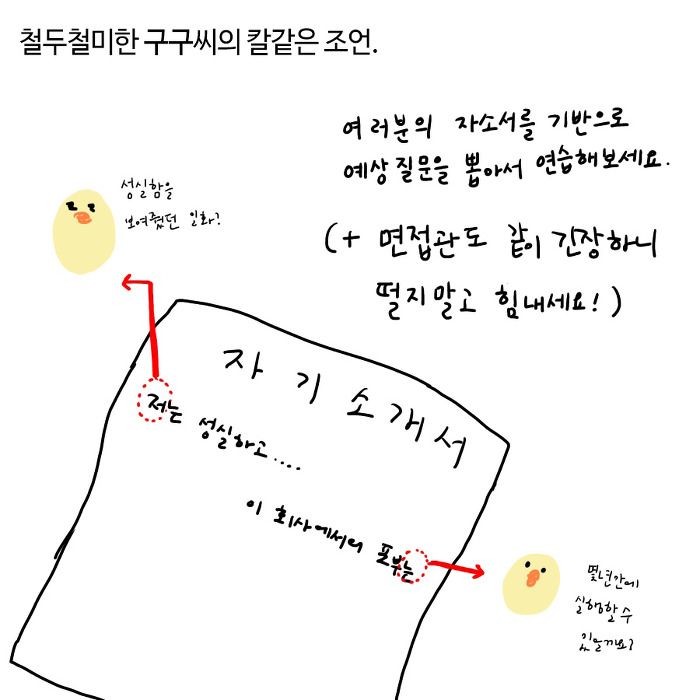 철두철미한 구구씨의 칼같은 조언.
여러분의 자소서를 기반으로
예상 질문을 뽑아서 연습해보세요.
(+ 면접관도 같이 긴장하니
떨지말고 힘내세요!)
성실함을
보여줬던 일화?
자기소개서
저는 성실하고....
이 회사에서의 포부는
몇년안에
실행할 수
있을까요?